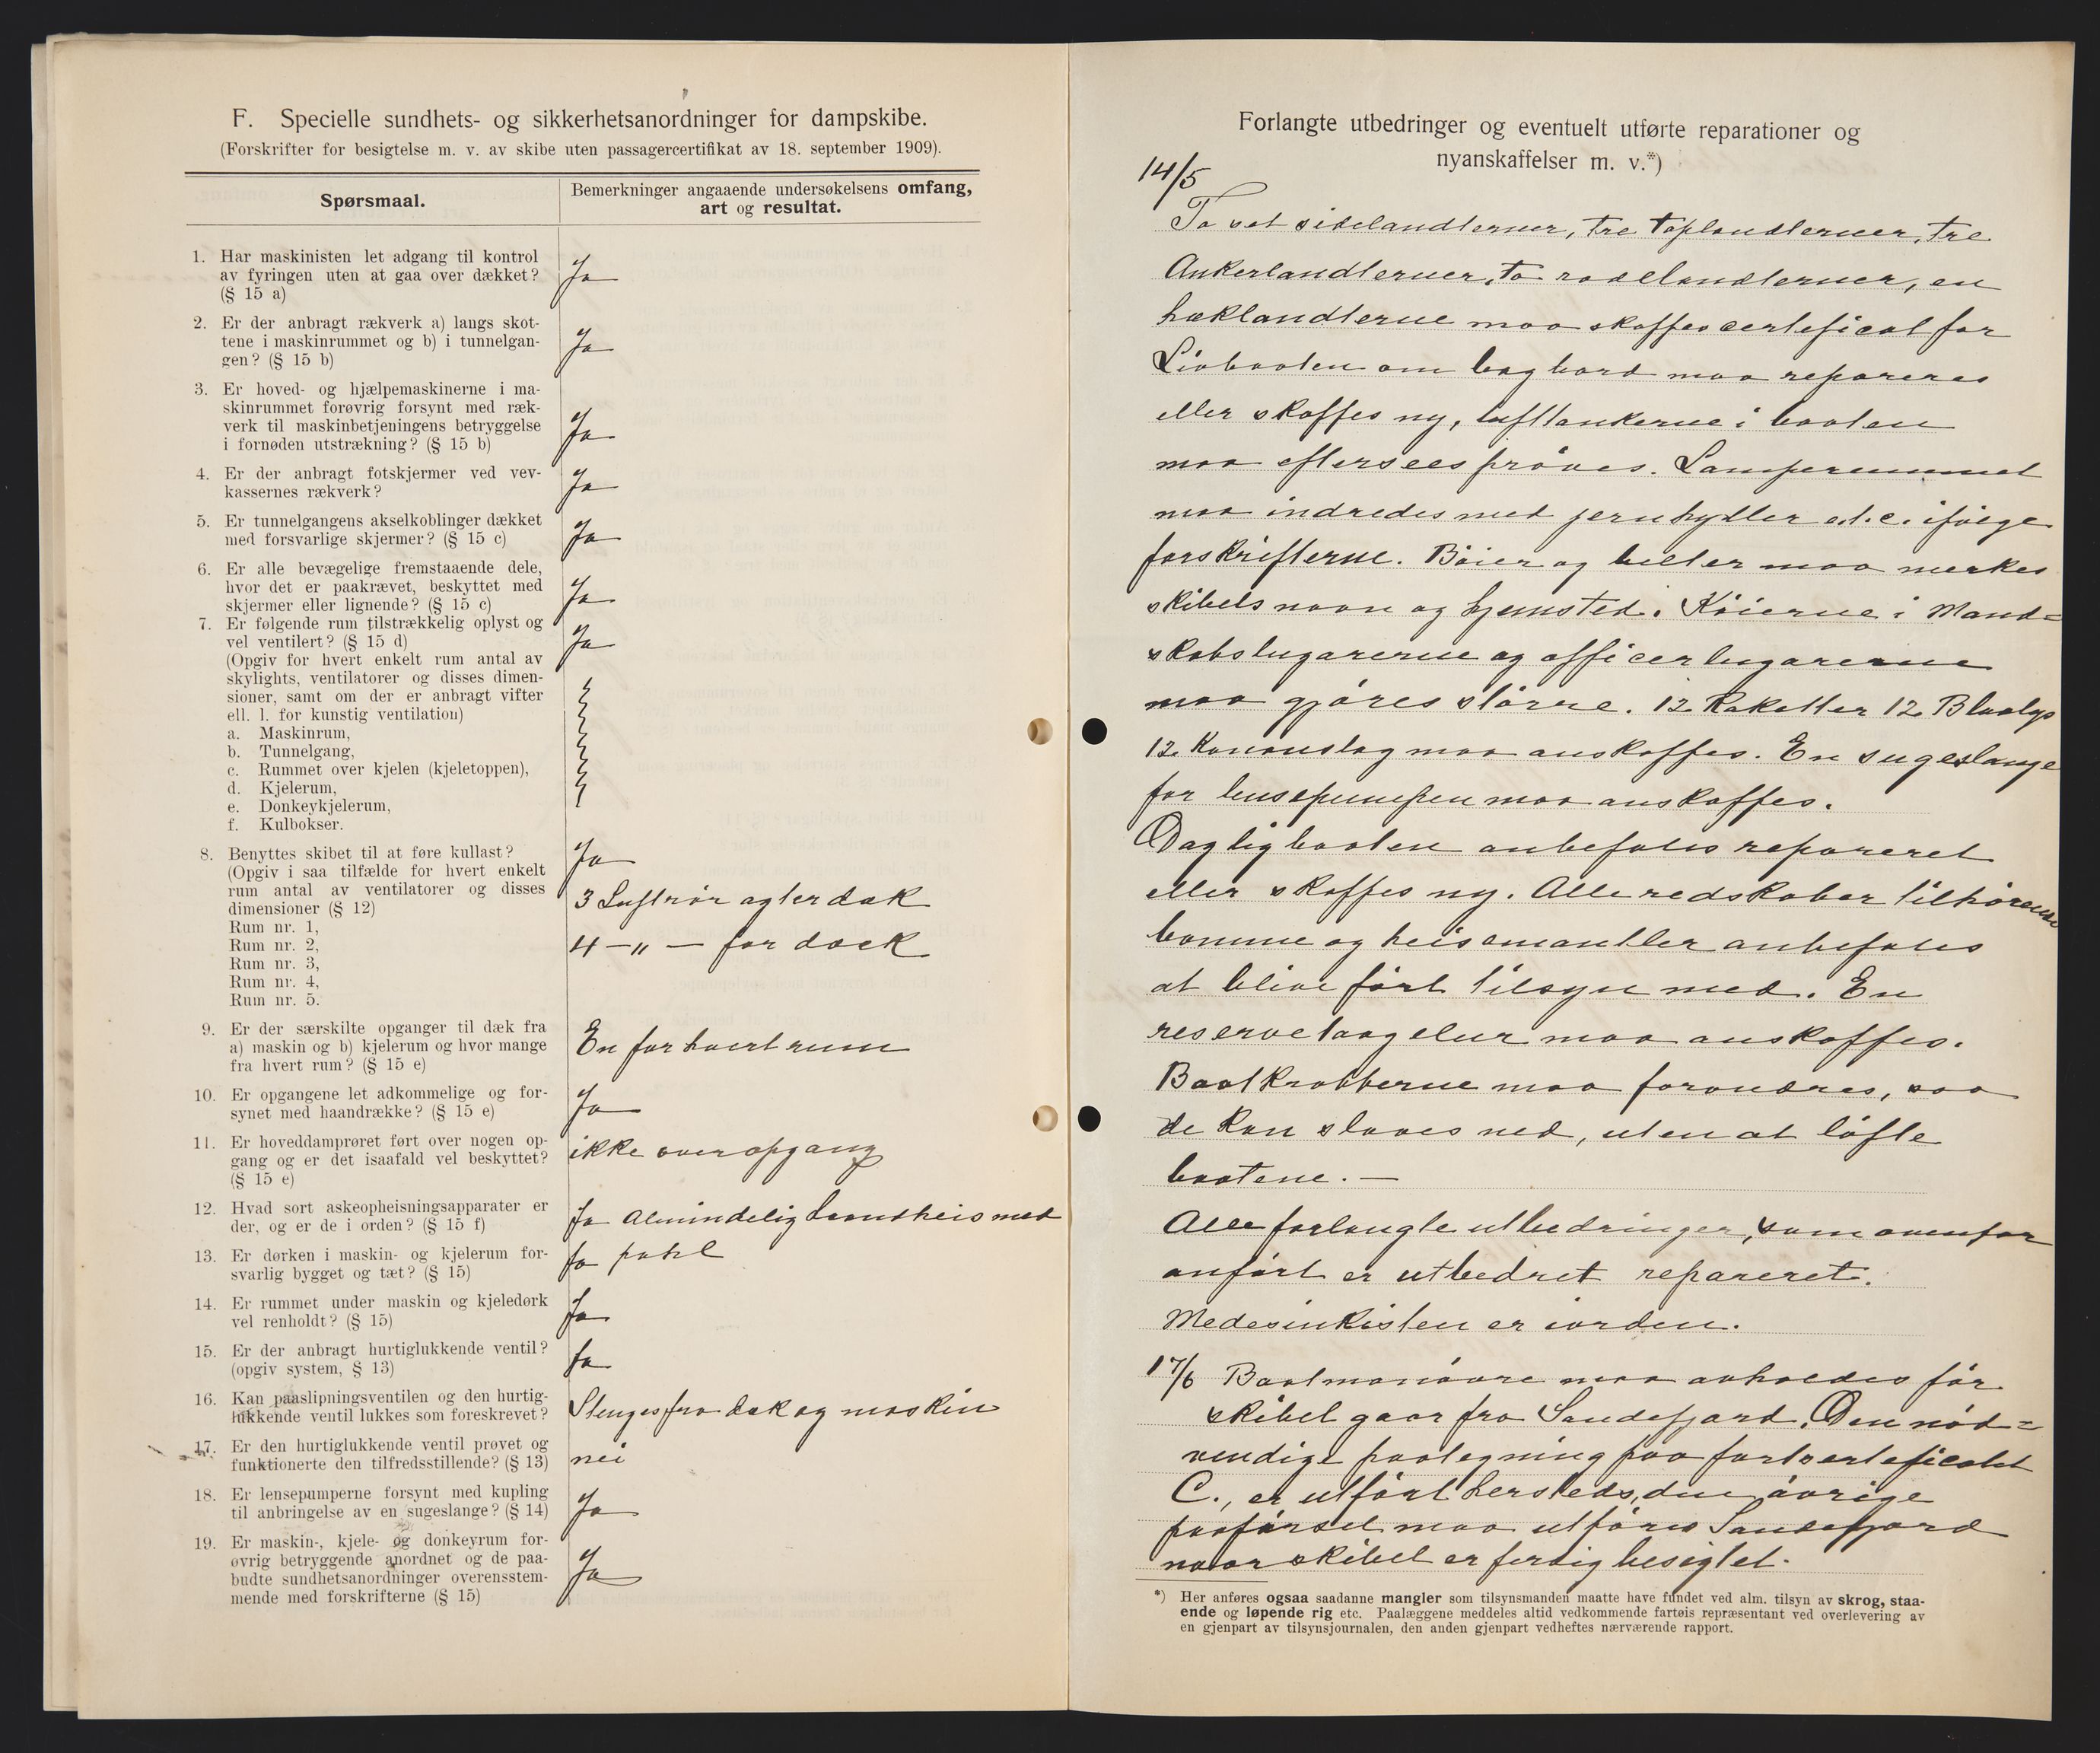 F. Specielle sundhets- og sikkerhetsanordninger for dampskibe.
(Forskrifter for besigtelse m. v. av skibe uten passagercertifikat av 18. september 1909).
Spørsmaal.
Bemerkninger angaaende undersøkelsens omfang,
art og resultat.
1. Har maskinisten let adgang til kontrol
av fyringen uten at gaa over dækket?
(§ 15 a)
Ja
2. Er der anbragt rækverk a) langs skot-
tene i maskinrummet og b) i tunnelgan-
gen? (§ 15 b)
Ja
3. Er hoved- og hjælpemaskinerne i ma-
skinrummet forøvrig forsynt med ræk-
verk til maskinbetjeningens betryggelse
i fornøden utstrækning? (§ 15 b)
Ja
4. Er der anbragt fotskjermer ved vev-
kassernes rækverk?
Ja
5. Er tunnelgangens akselkoblinger dækket
med forsvarlige skjermer? (§ 15 c)
Ja
6. Er alle bevægelige fremstaaende dele,
hvor det er paakrævet, beskyttet med
skjermer eller lignende? (§ 15 c)
Ja
7. Er følgende rum tilstrækkelig oplyst og
vel ventilert? (§ 15 d)
Ja
(Opgiv for hvert enkelt rum antal av
skylights, ventilatorer og disses dimen-
sioner, samt om der er anbragt vifter
ell. l. for kunstig ventilation)
a. Maskinrum,
b. Tunnelgang,
c. Rummet over kjelen (kjeletoppen),
d. Kjelerum,
e. Donkeykjelerum,
f. Kulbokser.
8. Benyttes skibet til at føre kullast?
Ja
(Opgiv i saa tilfælde for hvert enkelt
rum antal av ventilatorer og disses
dimensioner (§ 12)
3 Luftrör agter dæk
Rum nr. 1,
Rum nr. 2,
4 — „ — for dæck
Rum nr. 3,
Rum nr. 4,
Rum nr. 5.
9. Er der særskilte opganger til dæk fra
a) maskin og b) kjelerum og hvor mange
fra hvert rum? (§ 15 e)
En for hvert rum
10. Er opgangene let adkommelige og for-
synet med haandrække? (§ 15 e)
Ja
11. Er hoveddamprøret ført over nogen op-
gang og er det isaafald vel beskyttet?
(§ 15 e)
ikke over opgang
12. Hvad sort askeopheisningsapparater er
der, og er de i orden? (§ 15 f)
Ja Almindelig haandheis med
13. Er dørken i maskin- og kjelerum for-
svarlig bygget og tæt? (§ 15)
Ja pahl
14. Er rummet under maskin og kjeledørk
vel renholdt? (§ 15)
Ja
15. Er der anbragt hurtiglukkende ventil?
(opgiv system, § 13)
Ja
16. Kan paaslipningsventilen og den hurtig-
lukkende ventil lukkes som foreskrevet?
Stenges fra dæk og maskin
17. Er den hurtiglukkende ventil prøvet og
funktionerte den tilfredsstillende? (§ 13)
nei
18. Er lensepumperne forsynt med kupling
til anbringelse av en sugeslange? (§ 14)
Ja
19. Er maskin-, kjele- og donkeyrum for-
øvrig betryggende anordnet og de paa-
budte sundhetsanordninger overensstem-
mende med forskrifterne (§ 15)
Ja
Forlangte utbedringer og eventuelt utførte reparationer og
nyanskaffelser m. v.*)
14/5
To set sidelandterner, tre toplandterner, tre
Ankerlandterner, to rødelandterner, en
hæklandterne maa skaffes certeficat for
Livbaaten om bagbord maa repareres
eller skaffes ny, lufttankerne i baaten
maa efterseesprøves. Lamperummet
maa indredes med jernhyller e.t.c. ifølge
forskrifterne. Böier og belter maa merkes
skibets navn og hjemsted. Köierne i Mand=
skabslugarerne og officerlugarerne
maa gjöres större. 12 Raketter 12 Blaalys
12 Kanonslag maa anskaffes. En sugeslange
for lensepumpen maa anskaffes.
Dagligbaaten anbefales reparert
eller skaffes ny. Alle redskaber tilhörende
bomme og heisemantler anbefales
at blive fört tilsyn med. En
reservetaagelur maa anskaffes.
Baatkrabberne maa forandres, saa
de kan slaaes ned, uten at löfte
baatene. —
Alle forlangte utbedringer, som ovenfor
anfört er utbedret reparert.
Medesinkisten er iorden.
17/6 Baatmanöore maa avholdes för
skibet gaar fra Sandefjord. Den nöd=
vendige paategning paa fartcerteficatet
C., er utfört hersteds, den övrige
paaförsel maa utföres Sandefjord
naar skibet er ferdig besigtet.
*) Her anføres ogsaa saadanne mangler som tilsynsmanden maatte have fundet ved alm. tilsyn av skrog, staa-
ende og løpende rig etc. Paalæggene meddeles altid vedkommende fartøis repræsentant ved overlevering av
en gjenpart av tilsynsjournalen, den anden gjenpart vedheftes nærværende rapport.